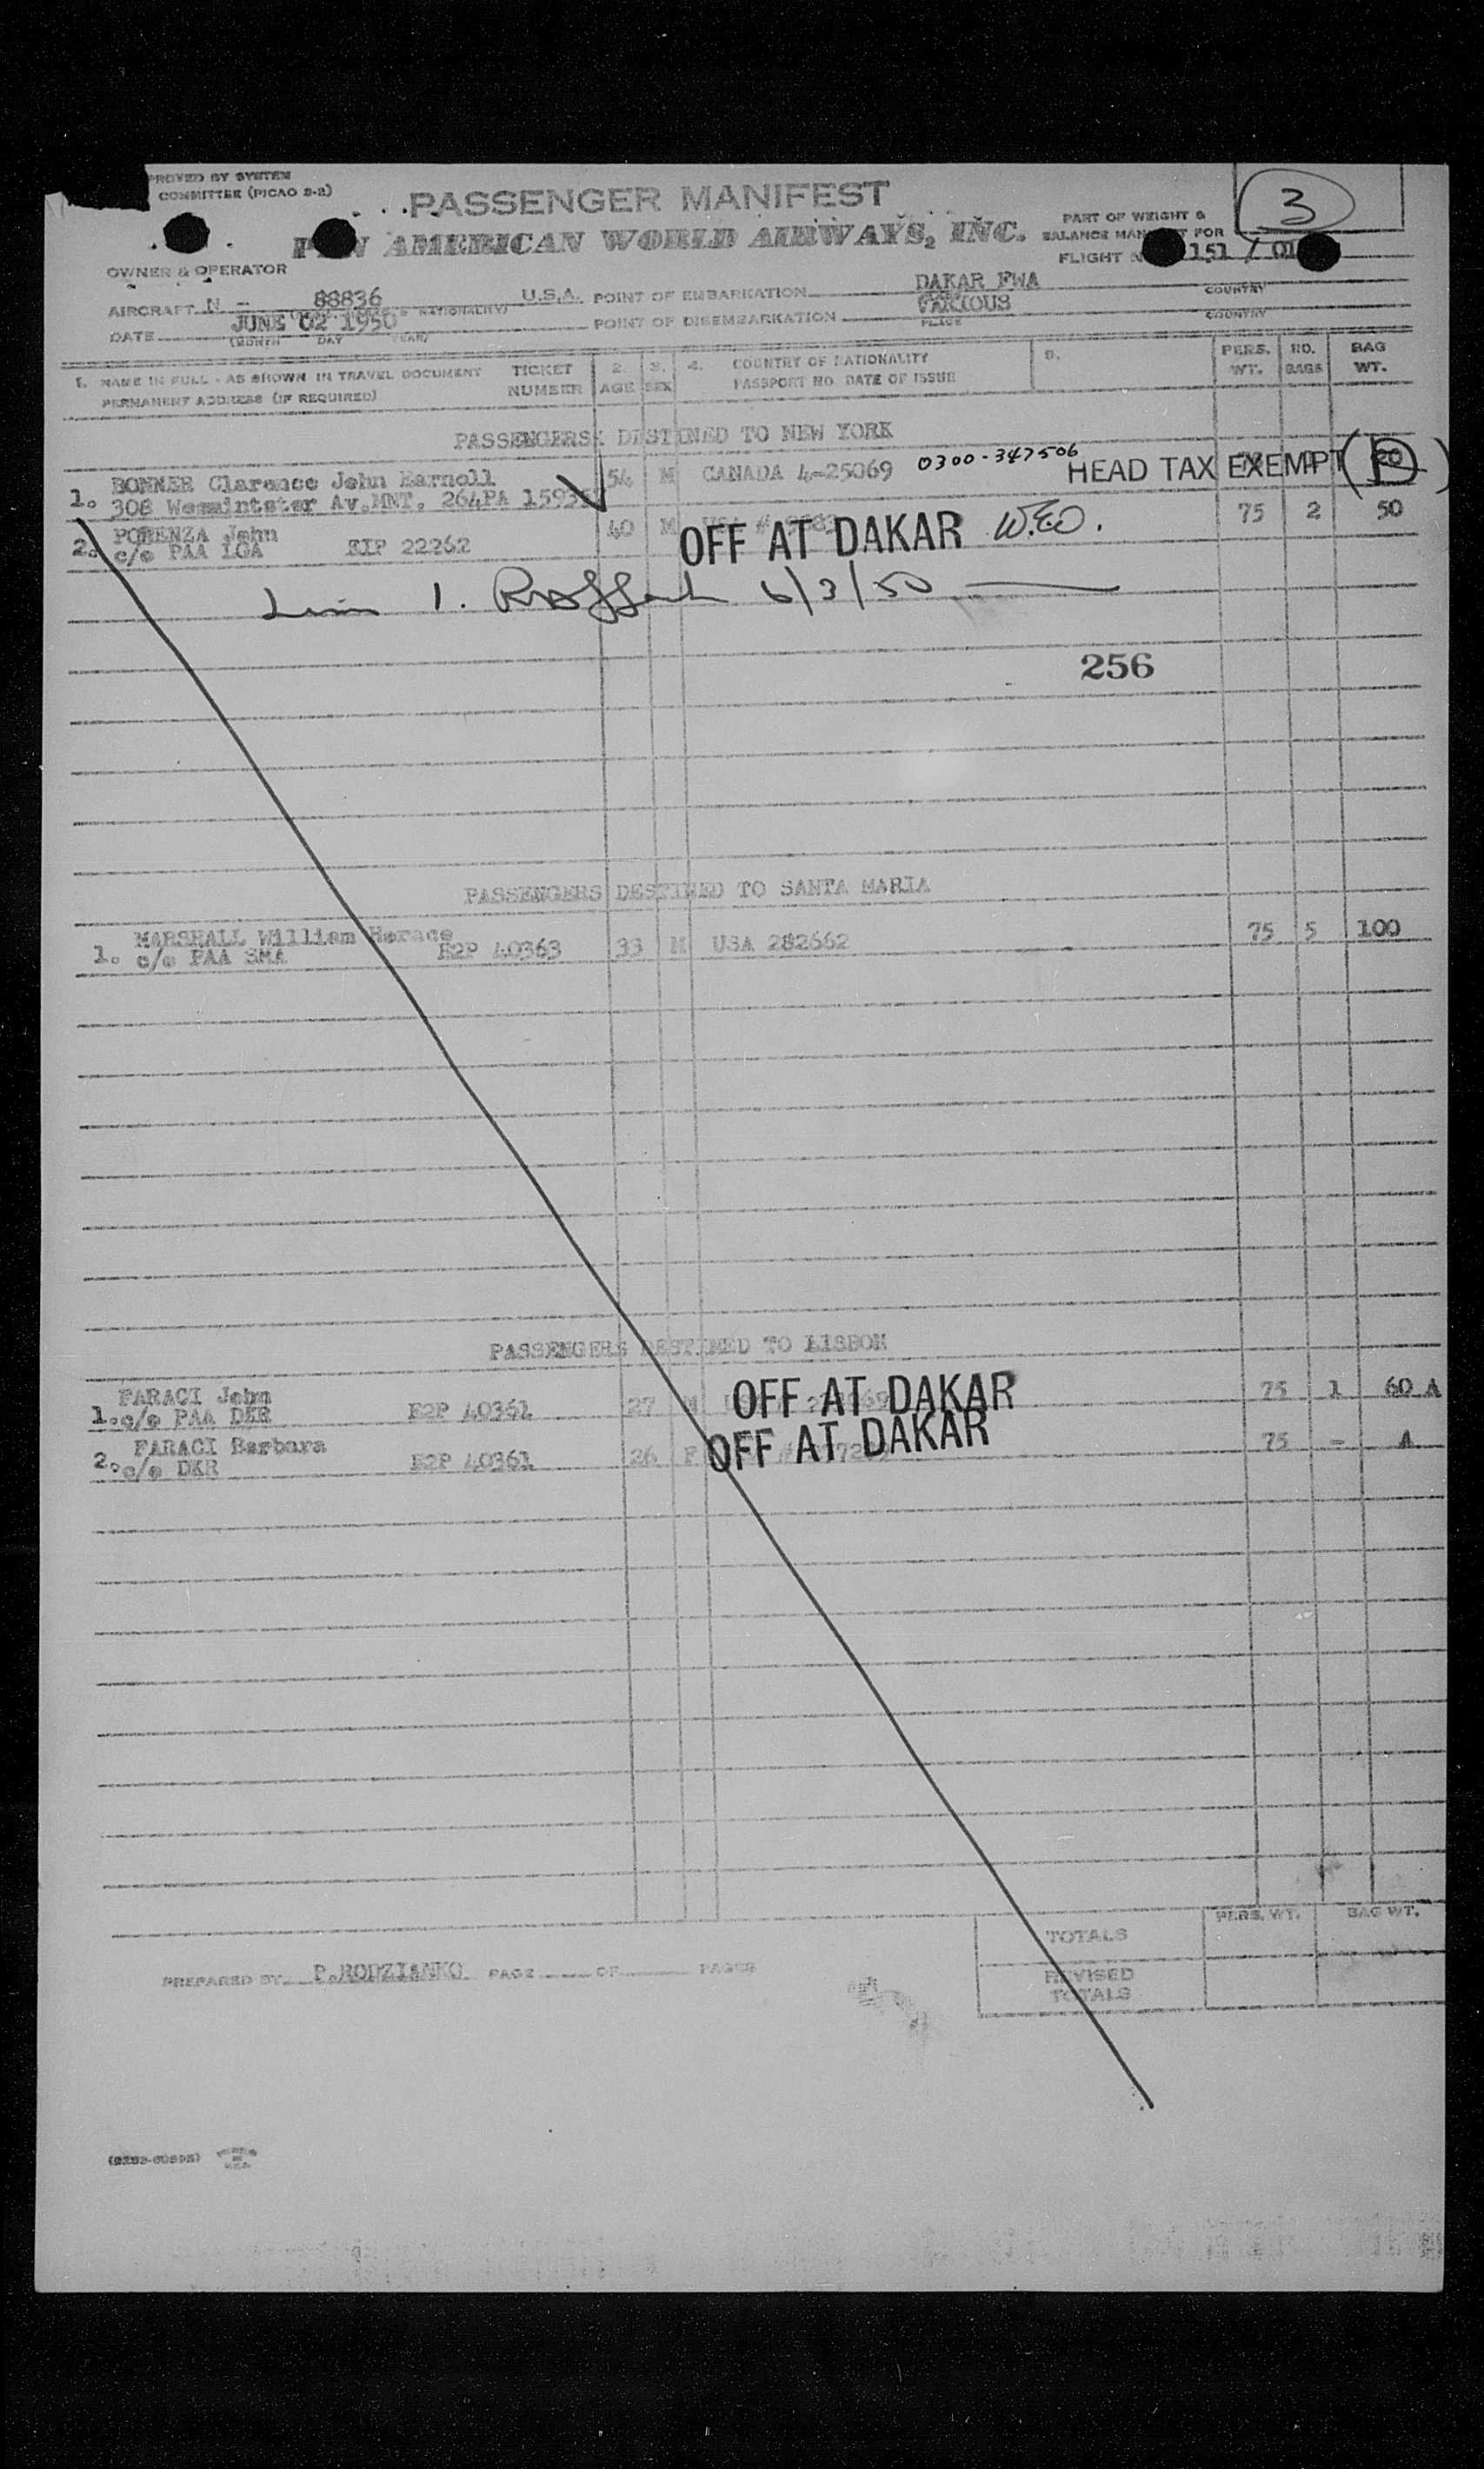 PROVED BY SYSTEM
COMMITTEE (PICAO 2-2)
PASSENGER MANIFEST
3
AMERICAN WORLD AIRWAYS, INC.
PART OF WEIGHT &
BALANCE FOR
FLIGHT 151 / 01
OWNER & OPERATOR
AIRCRAFT N - 88836 U.S.A. POINT OF EMBARKATION DAKAR FWA COUNTRY
NATIONALITY)
DATE JUNE 02 1950 POINT OF DISEMBARKATION VARIOUS COUNTRY
(MONTH DAY YEAR) PLACE
1. NAME IN FULL - AS SHOWN IN TRAVEL DOCUMENT TICKET 2. 3. 4. COUNTRY OF NATIONALITY 5. PERS. NO. BAG
PERMANENT ADDRESS (IF REQUIRED) NUMBER AGE SEX PASSPORT NO. DATE OF ISSUE WT. BAGS WT.
PASSENGERS DESTINED TO NEW YORK
1. BONNER Clarence John Earnoll 54 M CANADA 4-25069 0300-347506 HEAD TAX EXEMPT
308 Wesmintster Av.MNT. 264PA
2. John 40 M OFF AT DAKAR W.E.O. 75 2 50
c/o PAA LGA 22262
1. 6/3/50
256
PASSENGERS DESTINED TO SANTA MARIA
1. MARSHALL William Horace E2P 40363 33 M USA 282662 75 5 100
c/o PAA SMA
PASSENGERS DESTINED TO LISBON
FARACI John
1. c/o PAA DKR E2P 40361 27 M OFF AT DAKAR 75 1 60 A
FARACI Barbara
2. c/o DKR E2P 40361 26 F OFF AT DAKAR 75 - A
TOTALS PERS. WT. BAG WT.
PREPARED BY P.RODZIANKO PAGE OF PAGES
REVISED
TOTALS